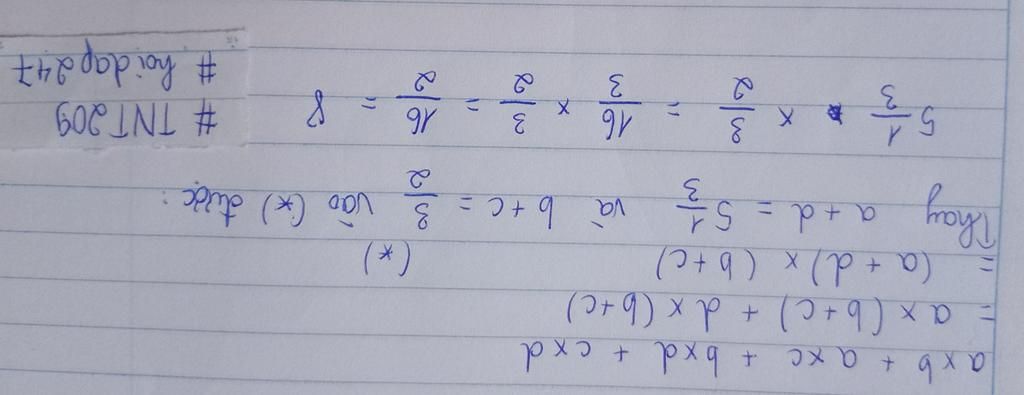 a x b + a x c + b x d + c x d
= a x (b + c) + d x (b + c)
= (a + d) x (b + c) (*)
Thay a + d = 5 1/3 và b + c = 3/2 vào (*) được:
5 1/3 x 3/2 = 16/3 x 3/2 = 16/2 = 8
# TNT209
# hoidap247